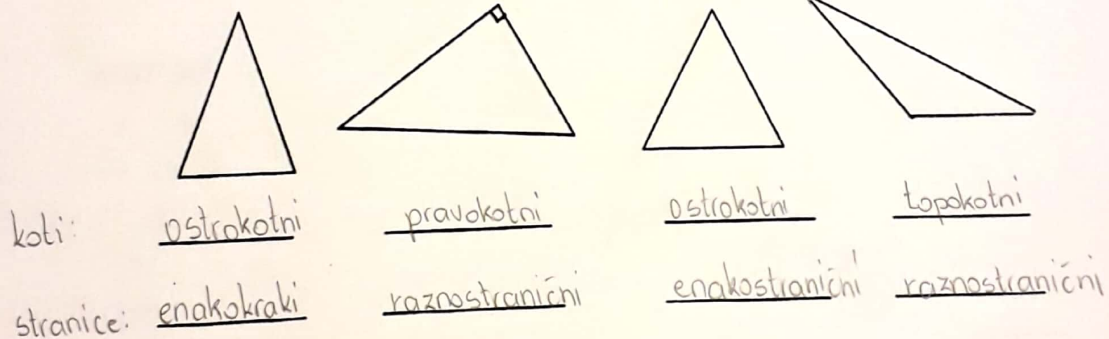 koti: ostrokotni pravokotni ostrokotni topokotni
stranice: enakokraki raznostranični enakostranični raznostranični